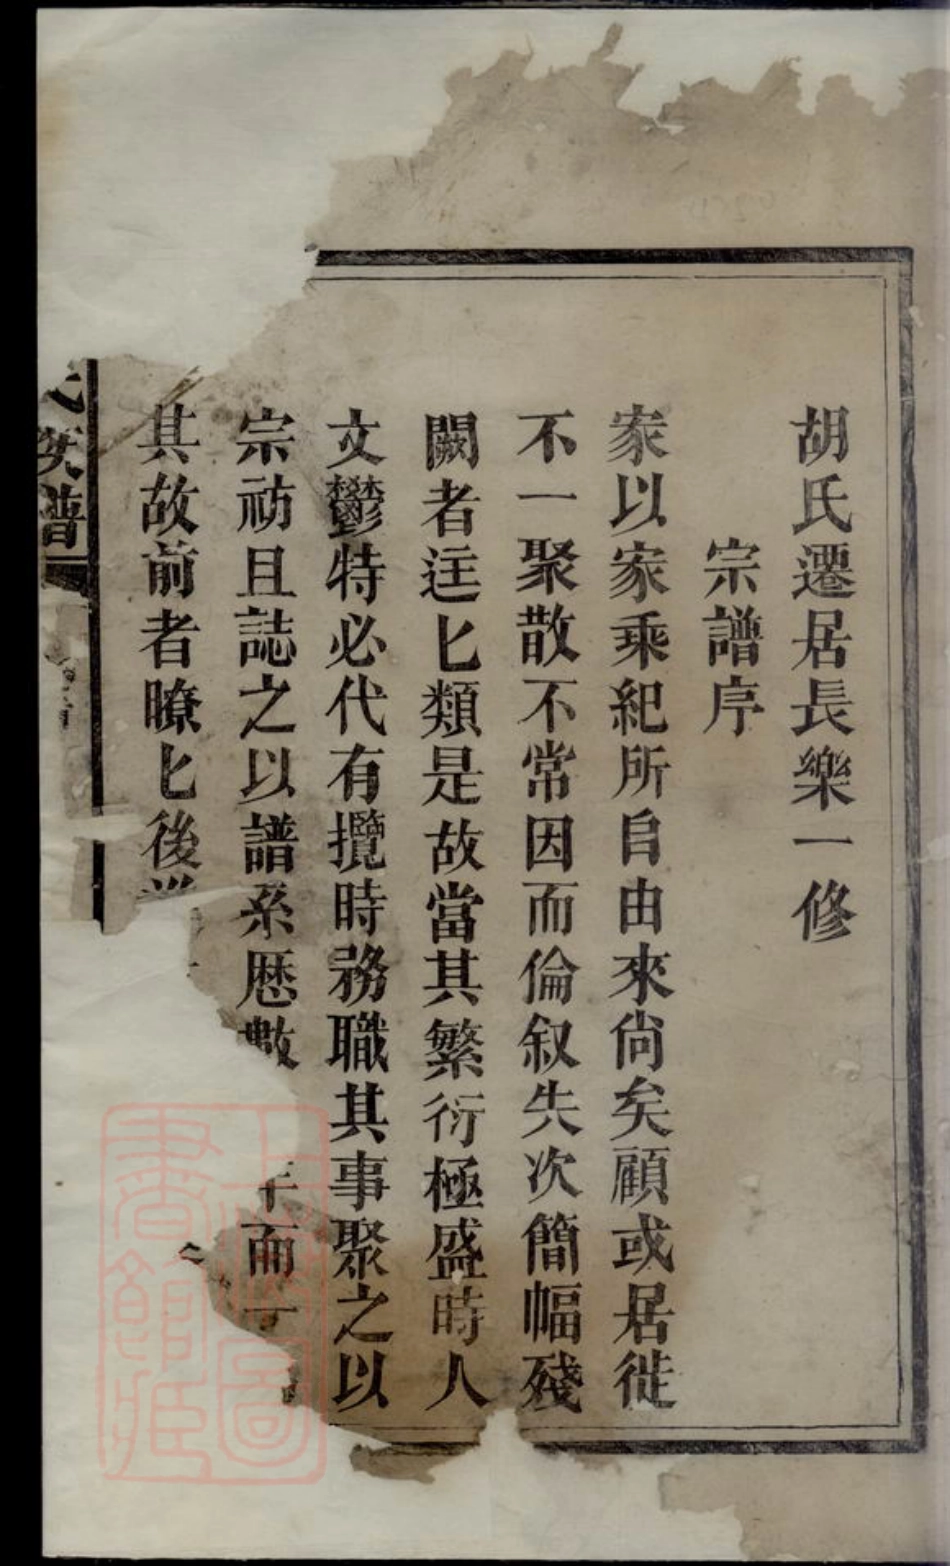 胡氏遷居長樂一修
宗譜序
家以家乘紀所自由來尙矣顧或居徙
不一聚散不常因而倫叙失次簡幅殘
闕者迋匕類是故當其繁衍極盛時人
文鬱特必代有攬時務職其事聚之以
宗祊且誌之以譜系歴數年而一
其故前者瞭匕後
氏族譜
上海圖書館藏